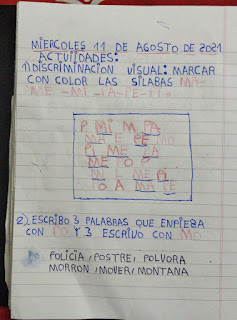 MIERCOLES 11 DE AGOSTO DE 2021
ACTUIDADES:
1) DISCRIMINACION VISUAL: MARCAR
CON COLOR LAS SILABAS MA-
ME - MI - PA - PE - PI.
P MI M PA
MA E PE MO
PI ME LA
ME O P
MI L ME A
TO A MA PE
2) ESCRIBO 3 PALABRAS QUE EMPIEZA
CON PO Y 3 ESCRIVO CON MO
POLICIA, POSTRE, POLVORA
MORRON, MOVER, MONTANA